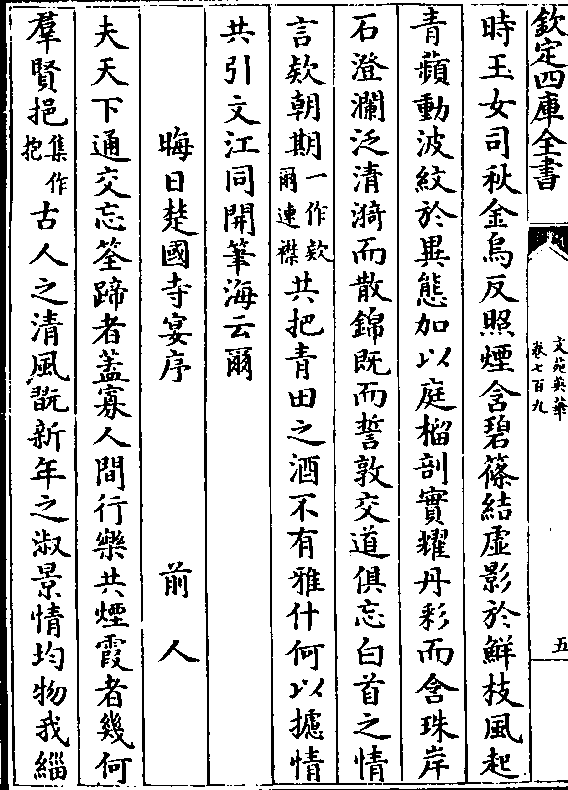 欽定四庫全書
文苑英華
卷七百九
五
時玉女司秋金烏反照煙含碧篠結虛影於鮮枝風起
青蘋動波紋於異態加以庭榴剖實耀丹彩而含珠岸
石澄瀾泛清漪而散錦既而誓敦交道俱忘白首之情
言欵朝期一作欵爾連襟共把青田之酒不有雅什何以攄情
共引文江同開筆海云爾
晦日楚國寺宴序 前人
夫天下通交忘筌蹄者蓋寡人間行樂共煙霞者幾何
羣賢挹集作抱古人之清風翫新年之淑景情均物我緇